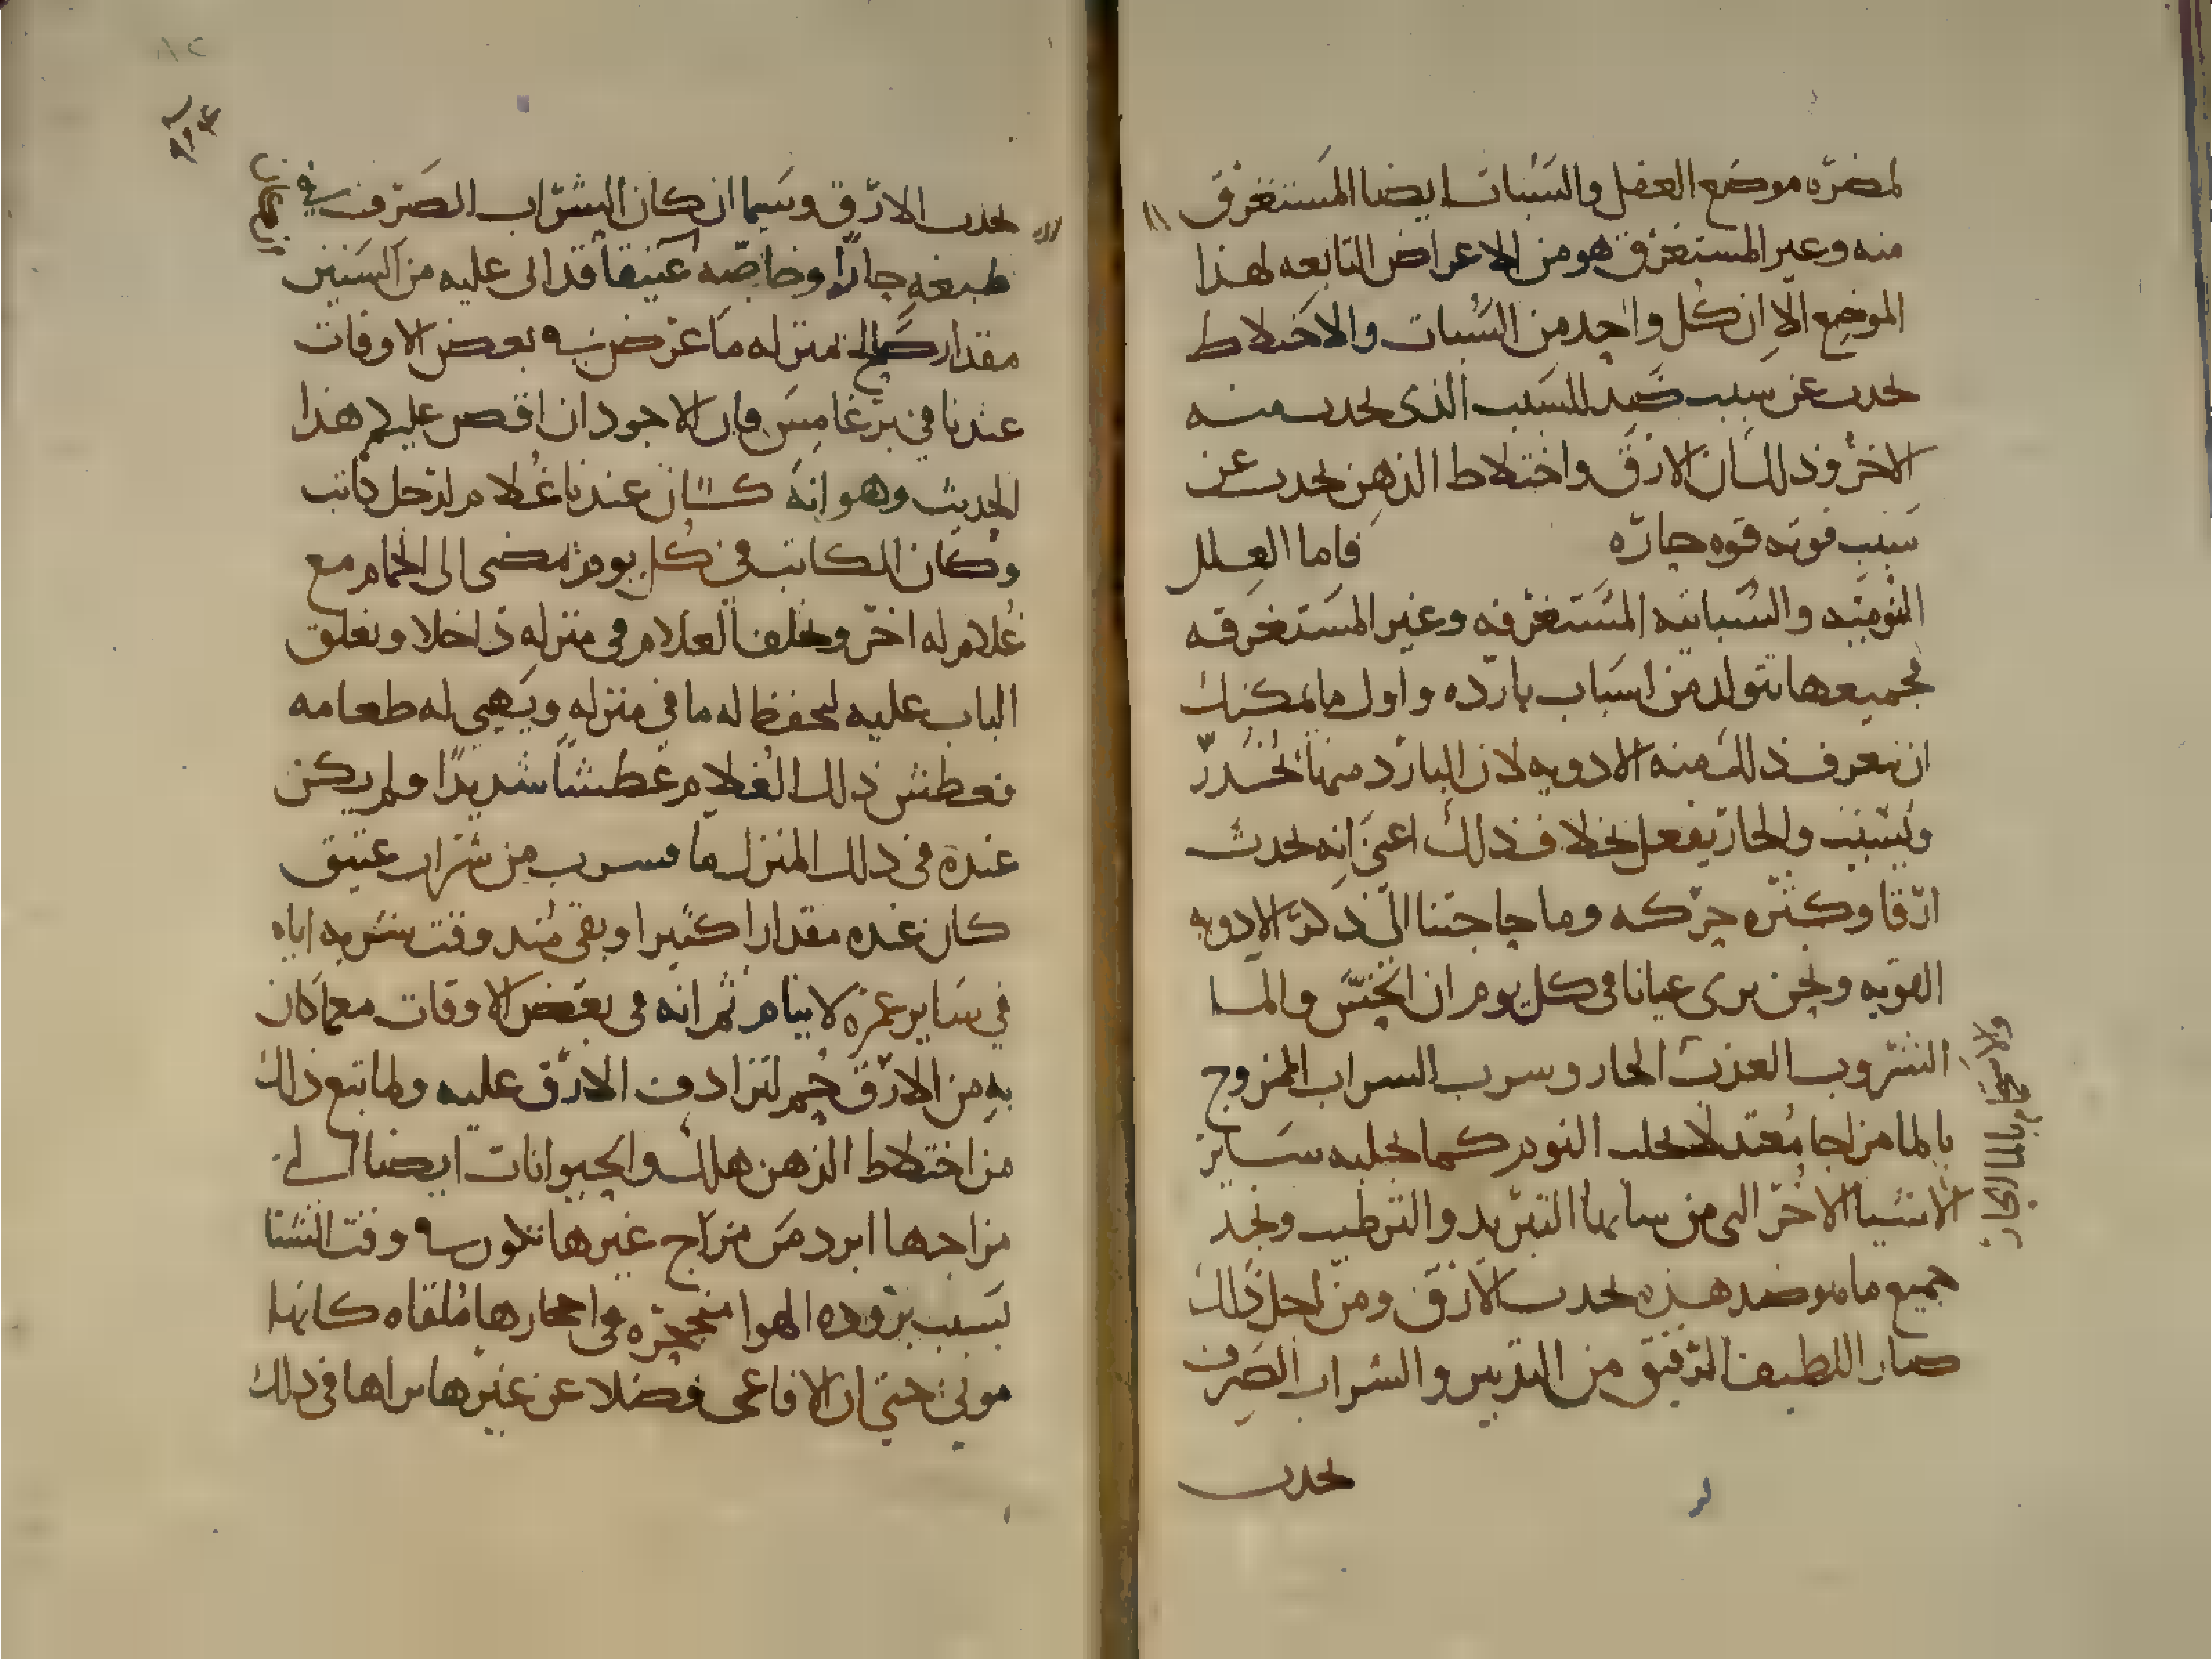 لمضره موضع العقل والسبات ايضا المستغرق
منه وغير المستغرق هو من الاعراض التابعه لهذا
الموضع الا ان كل واحد من السبات والاختلاط
يحدث عن سبب ضد للسبب الذى يحدث منه
الاخر وذلك ان الارق واختلاط الذهن يحدث عن
سبب قوته قوه حاره فاما العلل
النوميه والسباتيه المستغرقه وغير المستغرقه
فجميعها يتولد من اسباب بارده واول ما يمكنك
ان تعرف ذلك منه الادويه لان البارد منها يخدر
ويسبت والحار يفعل بخلاف ذلك اعنى انه يحدث
ارقا وكثره حركه وما حاجتنا الى ذكر الادويه
القويه ونحن نرى عيانا فى كل يوم ان الخس والما
الشروب العذب الحار وسرب السراب الممزوج
ولاستحمام بالما الحار
بالما مزاجا معتدلا يجلب النوم كما يجلبه ساير
الاشيا الاخر التى من شانها التبريد والترطيب ونجد
جميع ما هو ضد هذه يحدث الارق ومن اجل ذلك
صار اللطيف الرقيق من التدبير والشراب الصرف
يحدث
يحدث الارق وسيما ان كان الشراب الصرف في
طبعه حارا وخاصه عتيقا قد اتى عليه من السنين
مقدار صالح بمنزله ما عرض في بعض الاوقات
عندنا فى برغامس فان الاجود ان اقص عليكم هذا
الحديث وهو انه كان عندنا غلام لرجل كاتب
وكان الكاتب في كل يوم يمضى الى الحمام مع
غلام له اخر ويخلف الغلام فى منزله داخلا ويغلق
الباب عليه ليحفظ له ما فى منزله ويهيى له طعامه
فعطش ذلك الغلام عطشا شديدا ولم يكن
عنده فى ذلك المنزل ما فسرب من شراب عتيق
كان عنده مقدارا كثيرا وبقى منذ وقت شربه اياه
في ساير عمره لا ينام ثم انه فى بعض الاوقات مع ما كان
به من الارق حم لترادف الارق عليه ولما تبع ذلك
من اختلاط الذهن هلك والحيوانات ايضا التي
مزاجها ابرد من مزاج غيرها تكون في وقت الشتا
بسبب بروده الهوا منجحره فى احجارها ملقاه كانها
موتى حتى ان الافاعى فضلا عن غيرها تراها فى ذلك